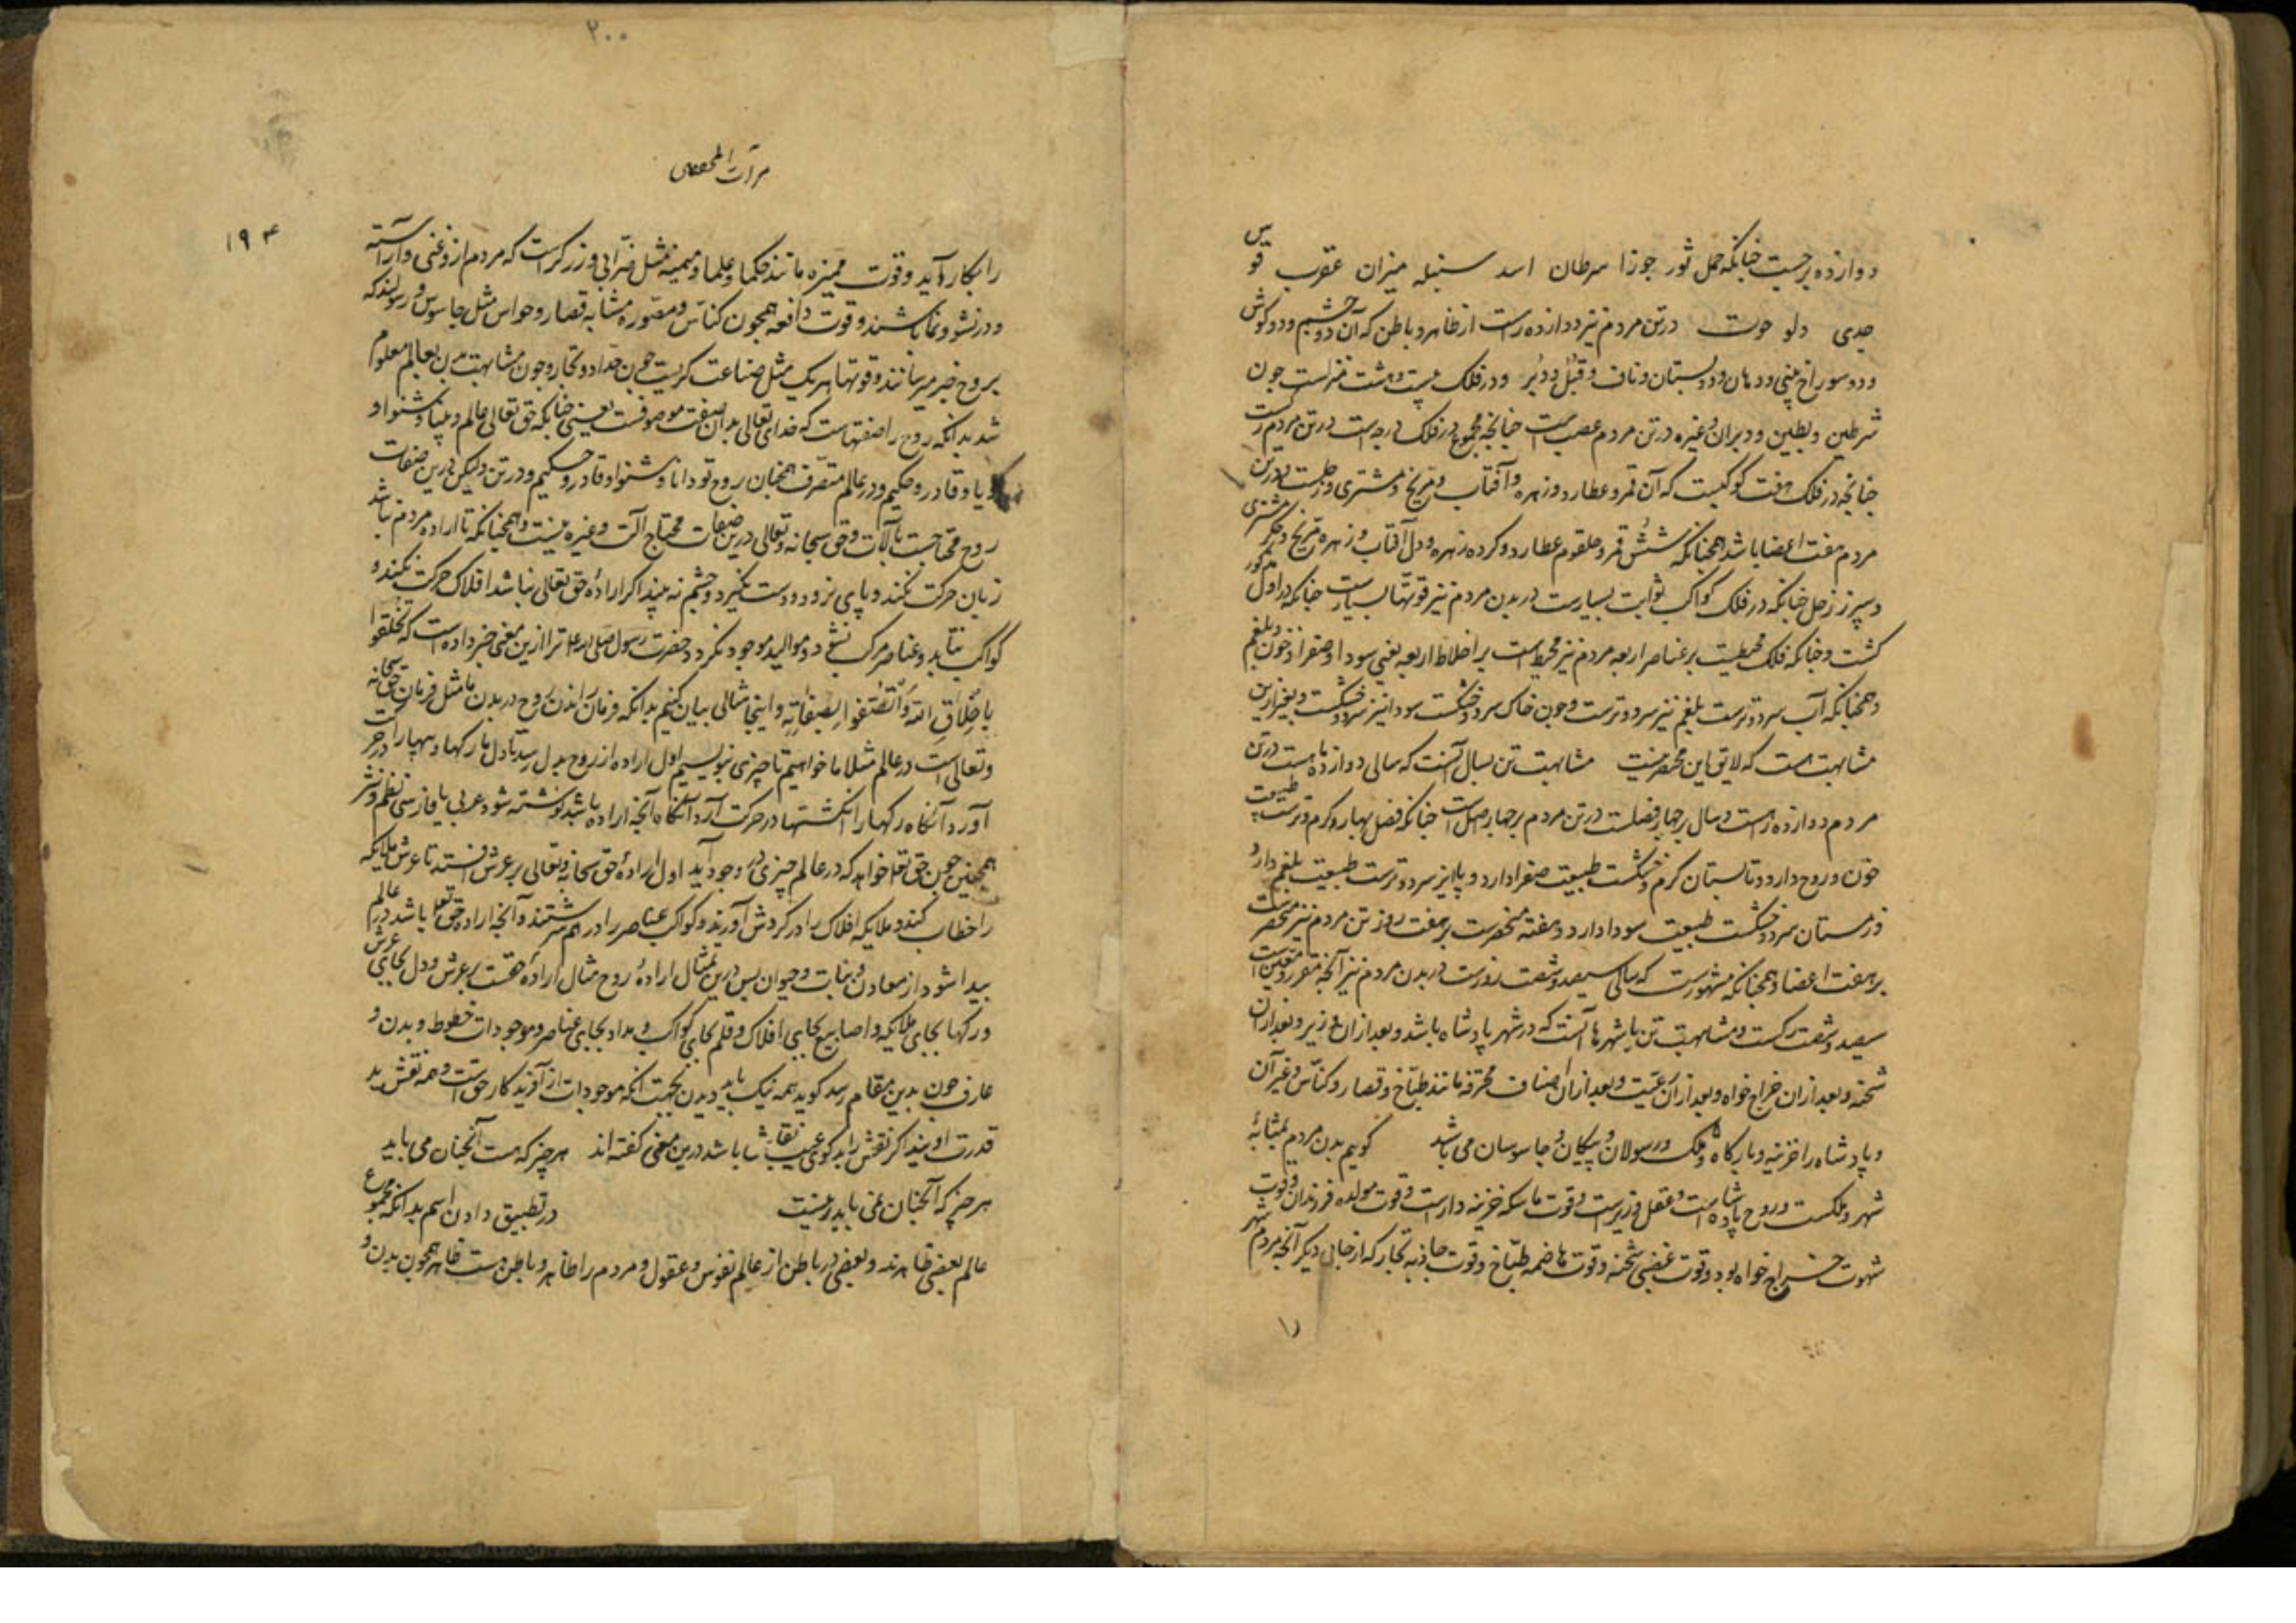 دوازده برجست چنانکه حمل ثور جوزا سرطان اسد سنبله میزان عقرب قوس
جدی دلو حوت درتن مردم نیز دوازده راهست از ظاهر و باطن که آن دو چشم و دو کوش
و دو سوراخ بینی و دهان و دو پستان و ناف و قبل و دبر و در فلک بیست و هشت منزلست چون
شرطین و بطین و دبران و غیره درتن مردم عصب است چنانچه مجموع در فلک درجه است درتن مردم رکست
چنانچه در فلک هفت کوکبست که آن قمر و عطارد و زهره و آفتاب و مریخ و مشتری و زحلست درتن
مردم هفت اعضا باشد همچنانکه شش قمر و حلقوم عطارد و کرده زهره و دل آفتاب و زهره مریخ و جکر مشتری
و سپرز زحل چنانکه در فلک کواکب ثوابت بسیارست در بدن مردم نیز قوتها بسیارست چنانکه در اول مذکور
کشت و چنانکه فلک محیطست بر عناصر اربعه مردم نیز محیط است بر اخلاط اربعه یعنی سودا و صفرا و خون و بلغم
و همچنانکه آب سرد و ترست بلغم نیز سرد و ترست و چون خاک سرد و خشکست سودا نیز سرد و خشکست و بغیر ازین
مشابهت هست که لایق این مختصر نیست مشابهت تن بسال آنست که سالی دوازده ماهست درتن
مردم دوازده راهست و سال بر چهار فصلست درتن مردم بر چهار اصل است چنانکه فصل بهار و کرم و ترست طبیعت
خون و روح دارد و تابستان کرم و خشکست طبیعت صفرا دارد و پاییز سرد و ترست طبیعت بلغم دارد
و زمستان سرد و خشکست طبیعت سودا دارد و هفته منحصرست بر هفت روز تن مردم نیز منحصر
بر هفت اعضا و همچنانکه مشهورست که سالی سیصد و شصت روزست در بدن مردم نیز آنچه مقرر و معین است
سیصد و شصت رکست و مشابهت تن باشهرها آنست که در شهر پادشاه باشد و بعد از آن وزیر و بعد از آن
شحنه و بعد از آن خراج خواه و بعد از آن رعیت و بعد از آن اصناف محترفه مانند طباخ و قصار و کناس و غیر آن
و پادشاه را خزینه و بارکاه و ملک و رسولان و پیکان و جاسوسان می باشد کویم بدن مردم بمثابهٔ
شهر و ملکست و روح پادشاه است و عقل وزیرست و قوت ماسکه خزینه دارست و قوت مولده فرزندان و قوت
شهوت خراج خواه بود و قوت غضبی شحنه و قوت هاضمه طباخ و قوت جاذبه تجار که از جایی دیکر آنچه مردم شهر
را
۲۰۰
مرآت المحققین
۱۹۴
را بکار آید و قوت ممیزه مانند حکما و علما و منمیه مثل و زرکرست که مردم ازو غنی و آراسته
و در نشو و نما باشند و قوت دافعه همچون کناس و مصوره مشابه قصار و حواس مثل جاسوس و رسولند که
بروح خبر میرسانند و قوتها هر یک مثل صناعت کریست چون حداد و نجار و چون مشابهت بدن بعالم معلوم
شد بدانکه روح را صفتهاست که خدای تعالی بدان صفت موصوفست یعنی چنانکه حق تعالی عالم و بینا و شنوا و
کویا و قادر و حکیم و در عالم متصرف همچنان روح تو دانا و شنوا و قادر و حکیم و در تن ولیکن درین صفات
روح محتاجست بآلات و حق سبحانه و تعالی درین صفات محتاج آلت و غیره نیست و همچنانکه تا اراده مردم نباشد
زبان حرکت نکند و پای نرود و دست نکیرد و چشم نه بیند اکر ارادهٔ حق تعالی نباشد افلاک حرکت نکند و
کواکب نتابد و عناصر مرکب نشود و موالید موجود نکردد حضرت رسول صلی الله علیه ترا ازین معنی خبر داده است که تخلقوا
بأخلاق الله واتصفوا بصفاته و اینجا مثالی بیان کنیم بدانکه فرمان راندن روح در بدن ما مثل فرمان حق سبحانه
و تعالی است در عالم مثلا ما خواهیم تا چیزی بنویسیم اول اراده از روح بدل رسد تا دل بارکها و پیها را در حرکت
آورد آنکاه رکها را انکشتها در حرکت آرد آنکاه آنچه اراده باشد نوشته شود عربی یا فارسی نظم و نثر
همچنین چون حق تعالی خواهد که در عالم چیزی در وجود آید اول ارادهٔ حق سبحانه و تعالی بر عرش افتد تا عرش ملایکه
را خطاب کند و ملایکه افلاک را در کردش آورند و کواکب عناصر را در هم سرشتند و آنچه اراده حق تعالی باشد در عالم
پیدا شود از معادن و نبات و حیوان پس درین تمثال ارادهٔ روح مثال ارادهٔ حقست بر عرش و دل بجای عرش
و رکها بجای ملایکه و اصابع بجای افلاک و قلم بجای کواکب و مداد بجای عناصر و موجودات خطوط و بدن و
عارف چون بدین مقام رسد کوید همه نیک باید دیدن بجهت آنکه موجودات از آفریدکار حق است و همه نقش ید
قدرت او بیند اکر نقش را بد کوی عیب نقاش باشد درین معنی کفته اند هر چیز که هست آنچنان می باید
هر چیز که آنچنان نمی باید نیست در تطبیق دادن اسم بدانکه مجموع
عالم بعضی ظاهرند و بعضی در باطن از عالم نفوس و عقول و مردم را ظاهر و باطن هست ظاهر همچون بدن و